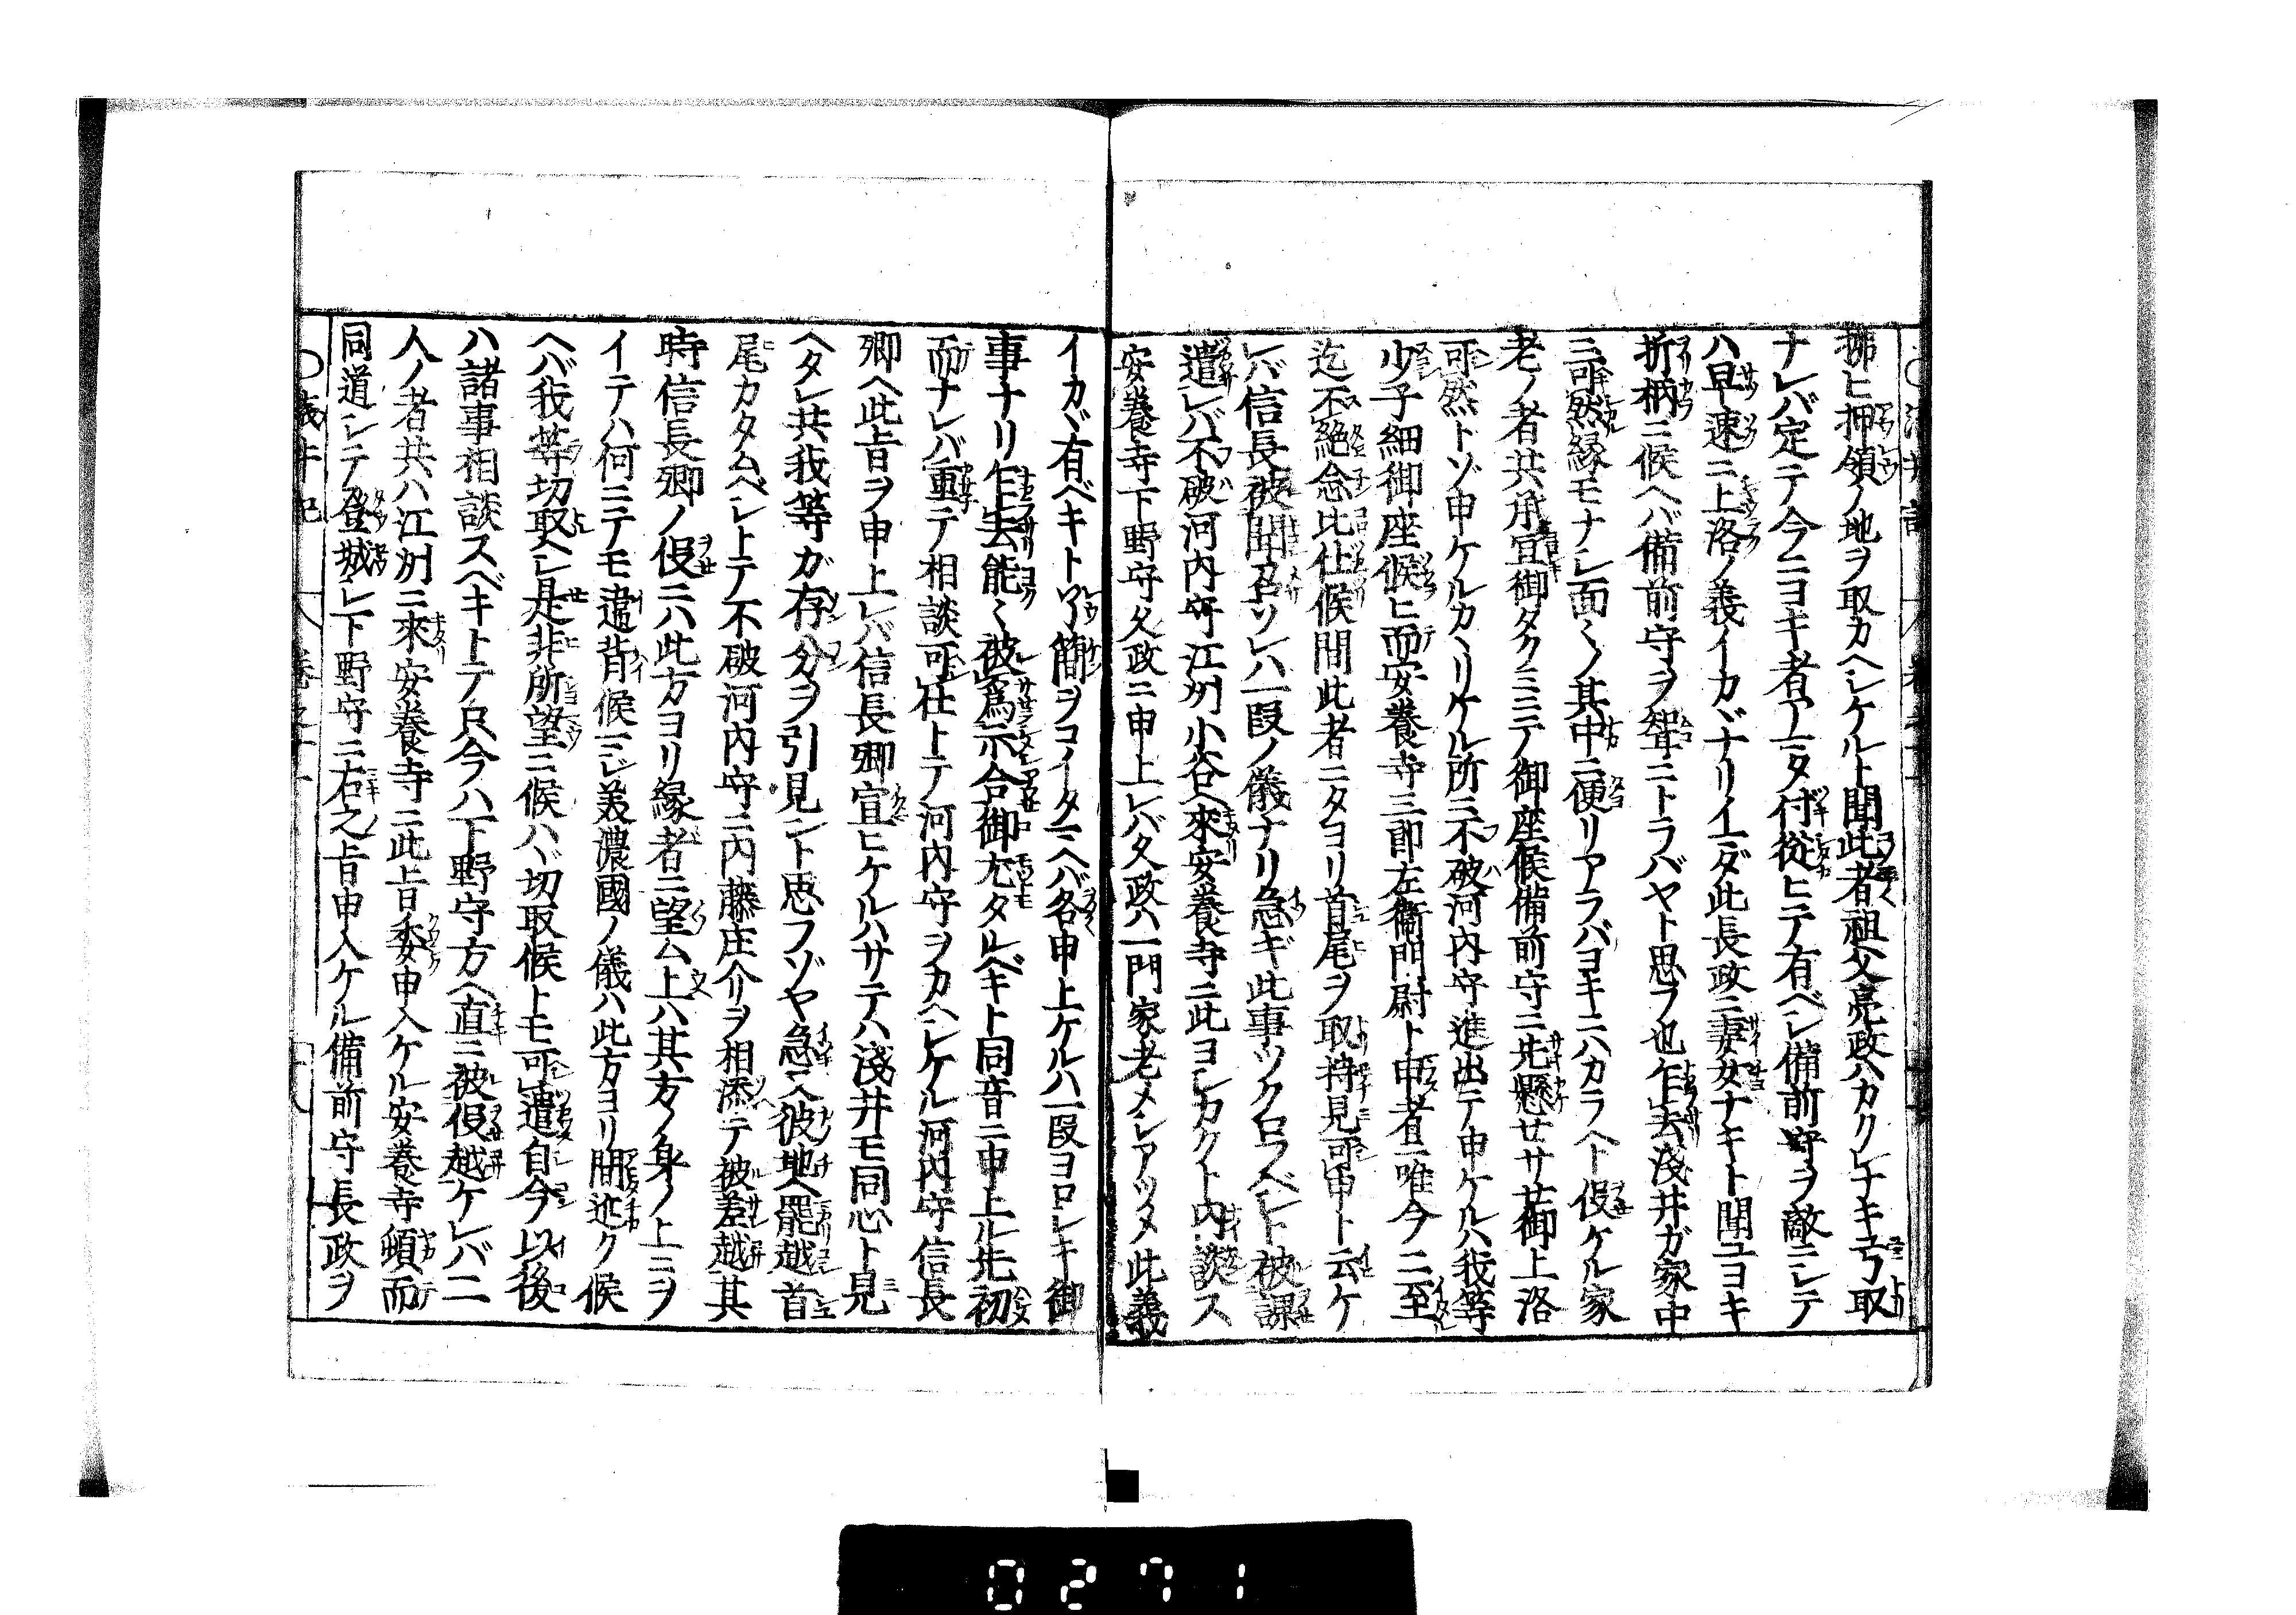 拂ヒ押領ノ地ヲ取カヘシケルト聞此者祖父亮政ハカクレナキ弓取
ナレバ定テ今ニヨキ者アマタ付從ヒテ有ベシ備前守ヲ敵ニシテ
ハ早速ニ上洛ノ義イカヾナリイマダ此長政ニ妻女ナキト聞ユヨキ
折柄ニ候ヘバ備前守ヲ聟ニトラバヤト思フ也乍去淺井ガ家中
ニ可然縁モナシ面〻ノ其中ニ便リアラバヨキニハカラヘト仰ケル家
老ノ者共承宜御タクミミテ御座候備前守ニ先懸サセ御上洛
可然トゾ申ケルカヽリケル所ニ不破河内守進出テ申ケルハ我等
少子細御座候ヒ而安養寺三郎左衞門尉ト申者ニ唯今ニ至
迄不絶念比仕候間此者ニタヨリ首尾ヲ取持見可申ト云ケ
レバ信長被聞召ソレハ一段ノ儀ナリ急ギ此事ツクロフベシト被課
遣レバ不破河内守江州小谷ヘ來安養寺ニ此ヨシカクト内談ス
安養寺下野守久政ニ申上レバ久政ハ一門家老メシアツメ此義
イカヾ有ベキト了簡ヲコイタマヘバ各申上ケルハ一段ヨロシキ御
事ナリ乍去能〻被爲示合御尤タルベキト同音ニ申上ル先初
而ナレバ重テ相談可仕トテ河内守ヲカヘシケル河内守信長
卿ヘ此旨ヲ申上レバ信長卿宣ヒケルハサテハ淺井モ同心ト見
ヘタレ共我等ガ存分ヲ引見ント思フゾヤ急ヘ彼地ヘ罷越首
尾カタムベシトテ不破河内守ニ内藤庄介ヲ相添テ被差越其
時信長卿ノ仰ニハ此方ヨリ縁者ニ望ム上ハ其方ノ身ノ上ニヲ
イテハ何ニテモ違背候マジ美濃國ノ儀ハ此方ヨリ間近ク候
ヘバ我等切取ヘシ是非所望ニ候ハヽ切取候トモ可遣自今以後
ハ諸事相談スベキトテ只今ハ下野守方ヘ直ニ被仰越ケレバ二
人ノ者共ハ江州ニ來安養寺ニ此旨委申入ケル安養寺頓而
同道シテ登城シ下野守ニ右之旨申入ケル備前守長政ヲ
0271